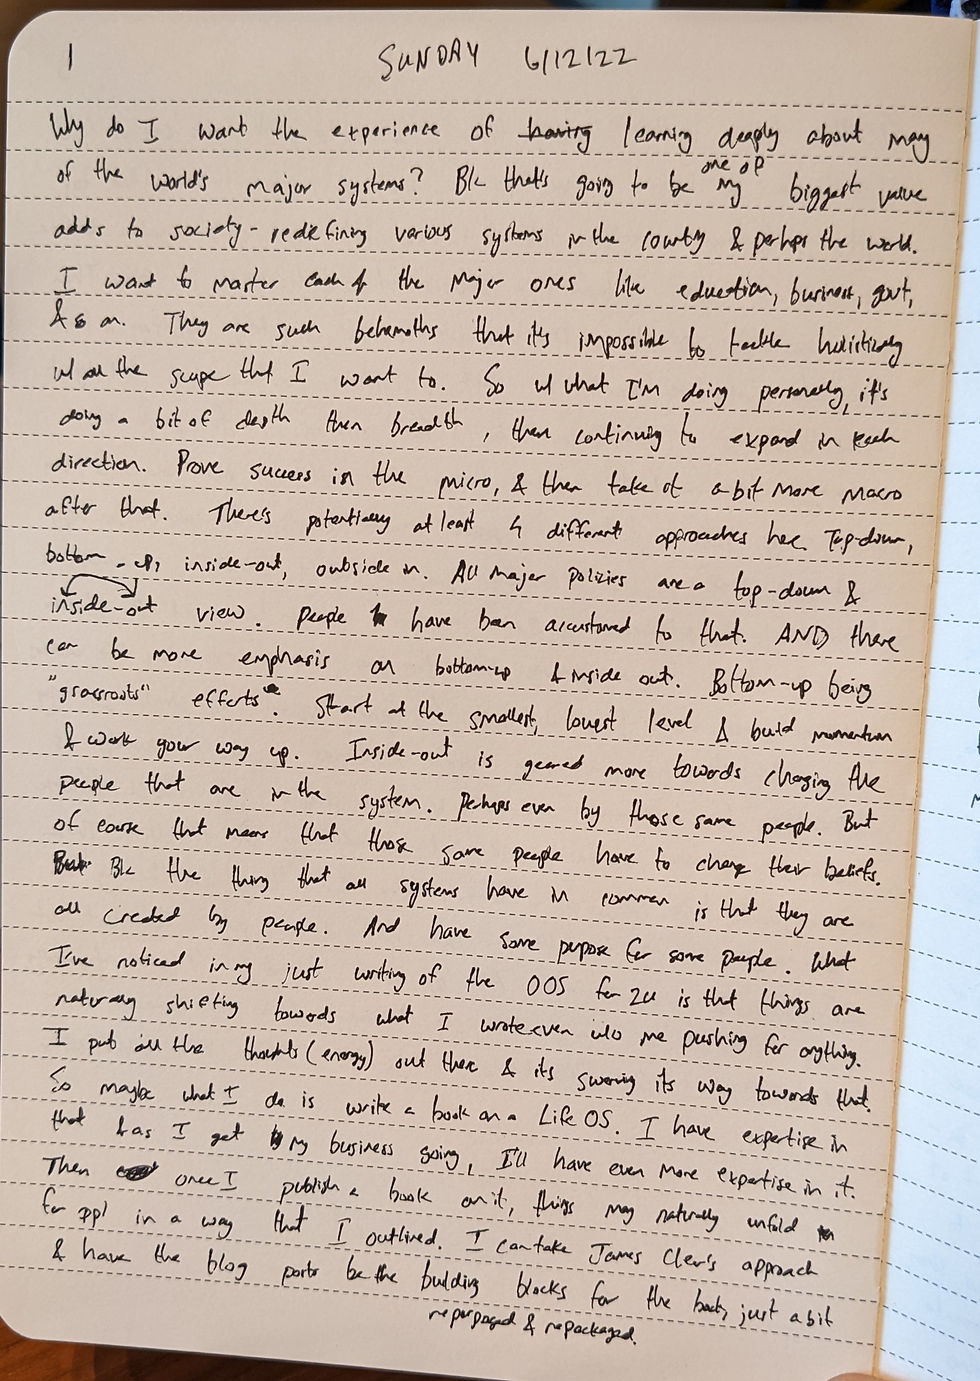 1 SUNDAY 6/12/22
Why do I want the experience of having learning deeply about many
of the world's major systems? B/c that's going to be one of my biggest value
adds to society - redefining various systems in the country & perhaps the world.
I want to master each of the major ones like education, business, govt,
& so on. They are such behemoths that it's impossible to tackle holistically
w/ all the scope that I want to. So w/ what I'm doing personally, it's
doing a bit of depth then breadth, then continuing to expand in each
direction. Prove success in the micro, & then take it a bit more macro
after that. There's potentially at least 4 different approaches here. Top-down,
bottom-up, inside-out, outside in. All major policies are a top-down &
inside-out view. People have been accustomed to that. AND there
can be more emphasis on bottom-up & inside out. Bottom-up being
"grassroots" efforts. Start at the smallest, lowest level & build momentum
& work your way up. Inside-out is geared more towards changing the
people that are in the system. Perhaps even by those same people. But
of course that means that those same people have to change their beliefs.
B/c the thing that all systems have in common is that they are
all created by people. And have some purpose for some people. What
I've noticed in my just writing of the OOS for 2U is that things are
naturally shifting towards what I wrote even w/o me pushing for anything.
I put all the thoughts (energy) out there & its its way towards that.
So maybe what I do is write a book on a Life OS. I have expertise in
that & as I get my business going, I'll have even more expertise in it.
Then once I publish a book on it, things may naturally unfold
for ppl in a way that I outlined. I can take James Clear's approach
& have the blog posts be the building blocks for the book, just a bit
repurposed & repackaged.